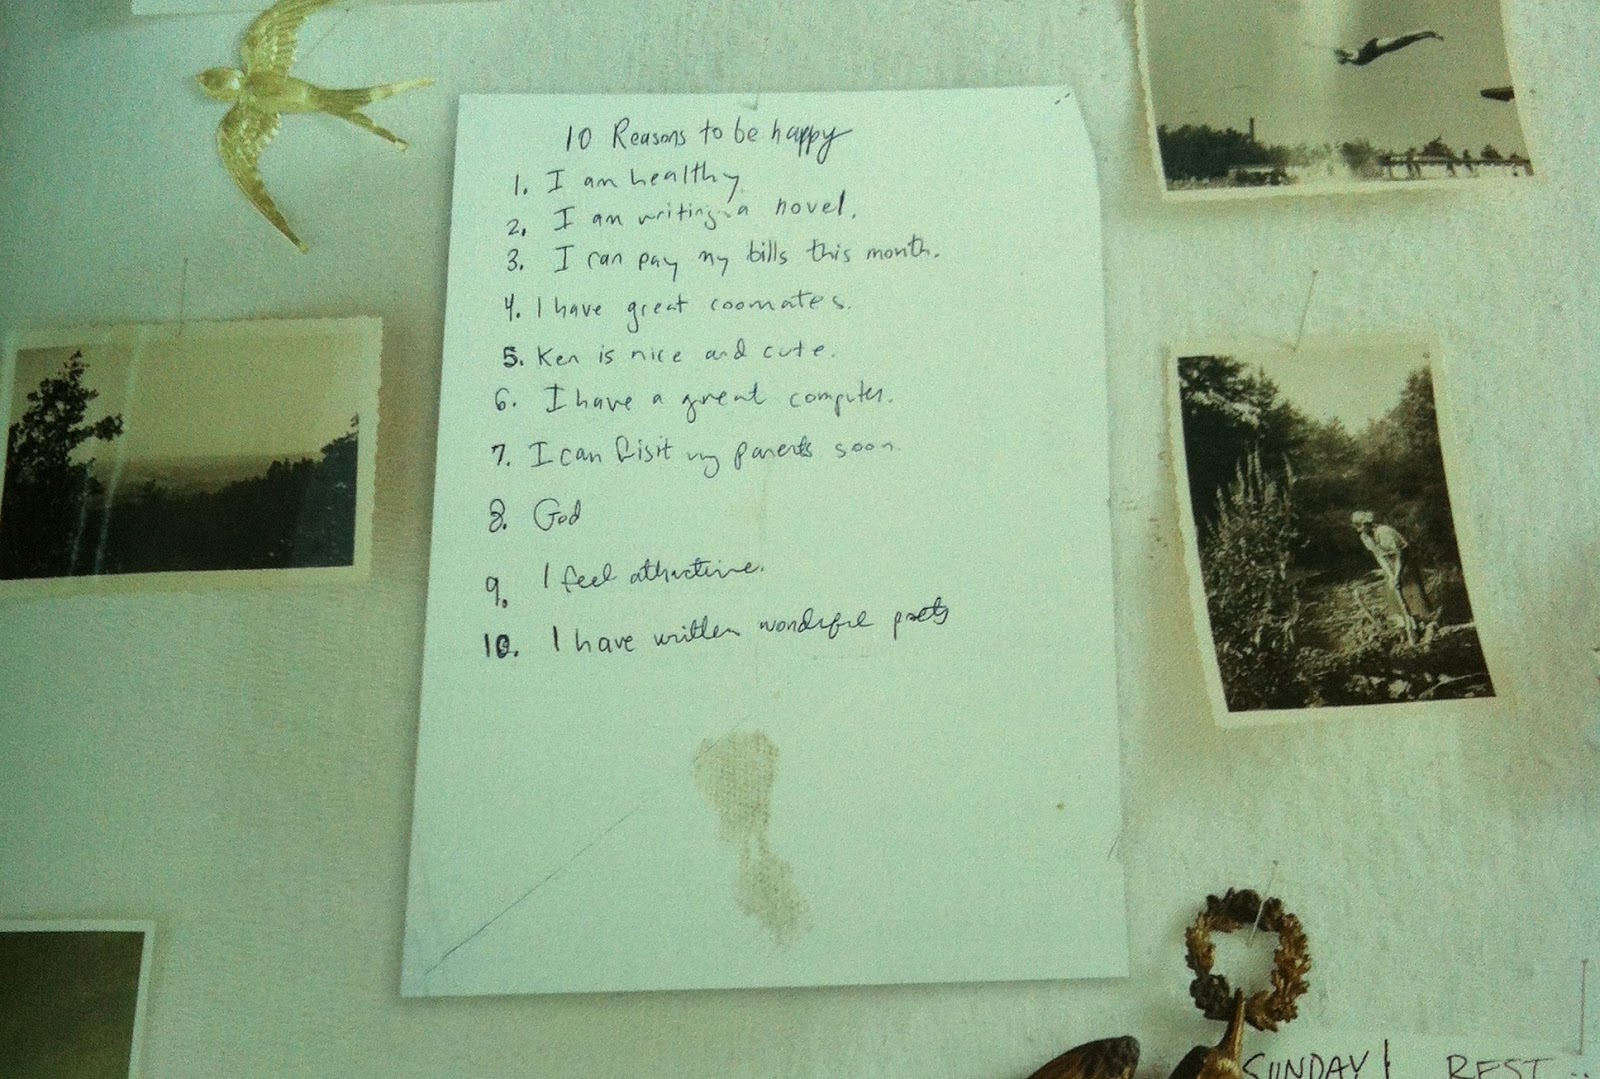 10 Reasons to be happy
1. I am healthy
2. I am writing a novel.
3. I can pay my bills this month.
4. I have great roomates.
5. Ken is nice and cute.
6. I have a great computer.
7. I can visit my parents soon.
8. God
9. I feel attractive.
10. I have written wonderful
SUNDAY! REST...